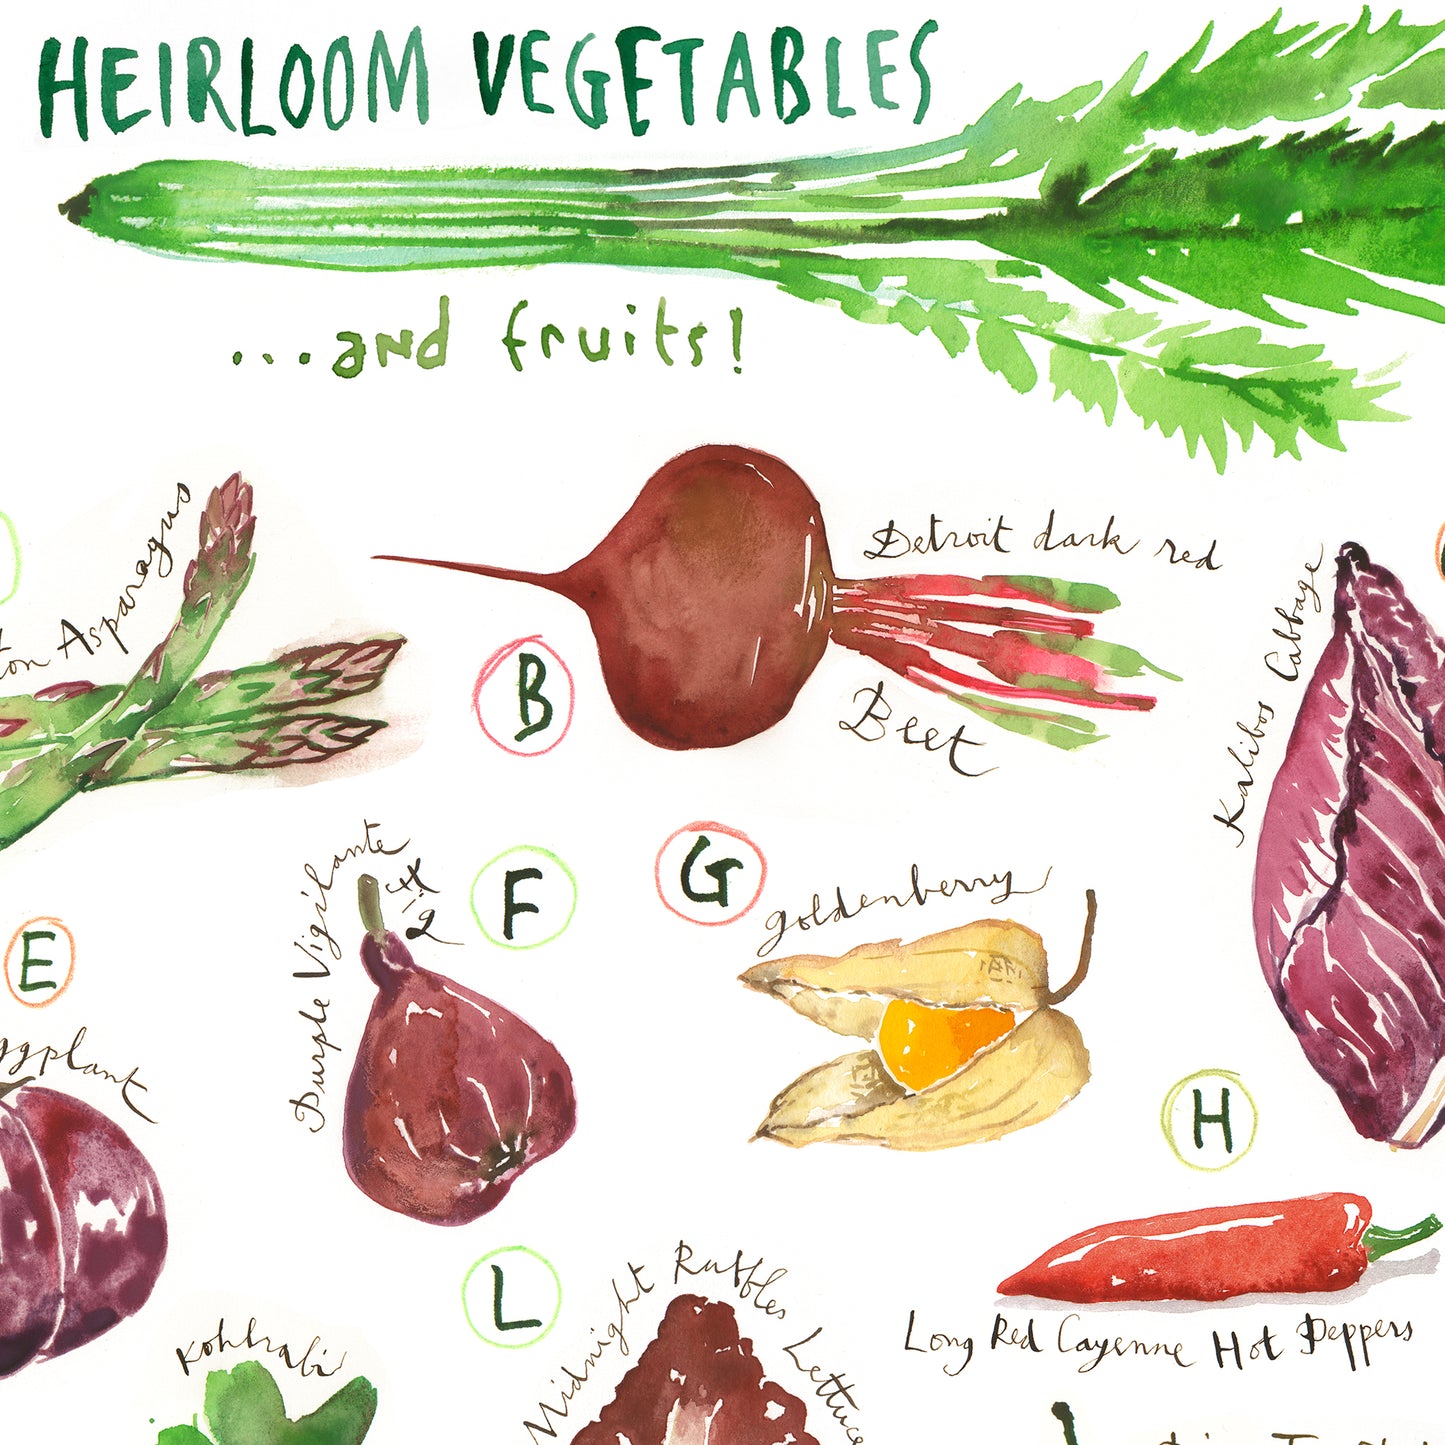 HEIRLOOM VEGETABLES
...and fruits!
Asparagus
B
Detroit dark red
Beet
Kalibos Cabbage
E
Purple Vigilante
F
G
goldenberry
H
Long Red Cayenne Hot Peppers
Kohlrabi
L
Midnight Ruffles Lettuce